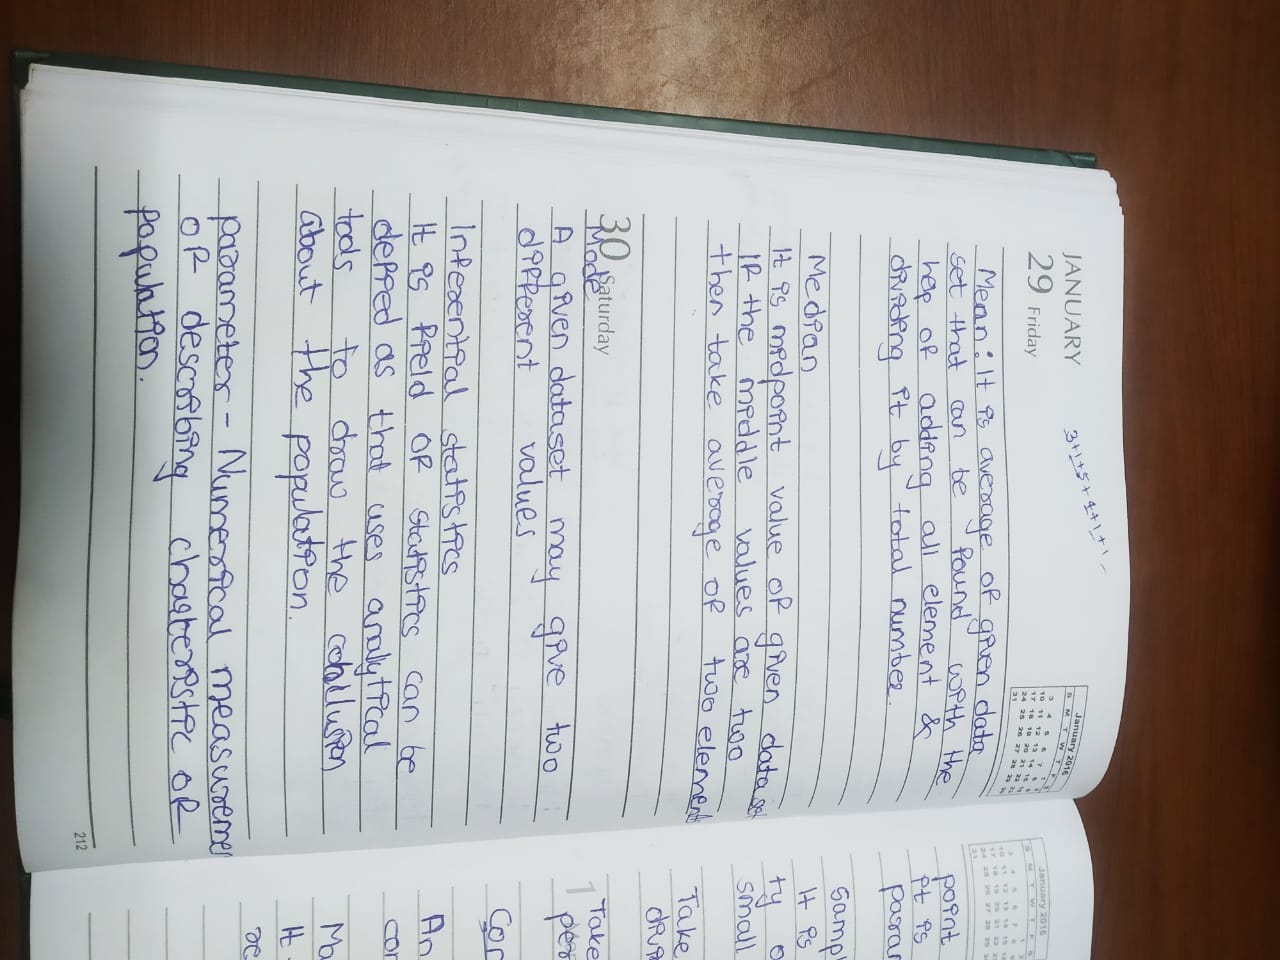 JANUARY
29 Friday
3+1+5+4+1+1
January 2016
Mean: It is average of given data
set that can be found with the
help of adding all element &
dividing it by total number.
Median
It is midpoint value of given dataset
If the middle values are two
then take average of two element
30 Saturday
Mode
A given dataset may give two
different values
Inferential statistics
It is field of statistics can be
defined as that uses analytical
tools to draw the conclusion
about the population.
parameter - Numerical measuremen
of describing characteristic of
population.
212
January 2016
point
it is
param
sampl
It is
ty o
small
Take
divi
1
Take
Con
An
con
Ma
It